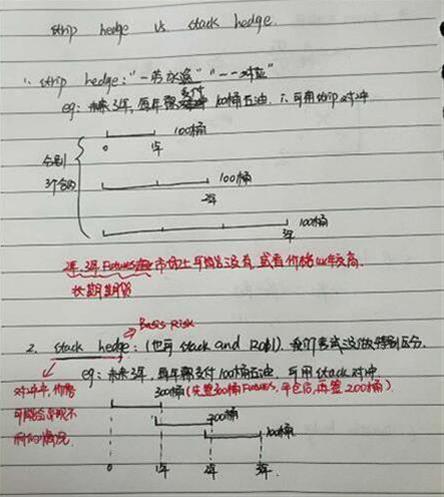 strip hedge vs. stack hedge.
1. strip hedge: "一劳永逸" "一一对应"
eg: 未来3年, 每年需支付100桶石油. ∴可用strip对冲
100桶
0 1年
分别
3个合约
100桶
2年
100桶
3年
2年, 3年Futures在市场上可能没有, 或者价格比较高.
长期期货
Basis Risk
2. stack hedge: (也叫 stack and Roll). 我们考试没做特别区分.
eg: 未来3年, 每年需支付100桶石油. 可用stack对冲.
对冲中, 价格
可能会出现不
利的情况.
300桶(先签300桶Futures, 平仓后, 再签200桶)
200桶
100桶
0 1年 2年 3年